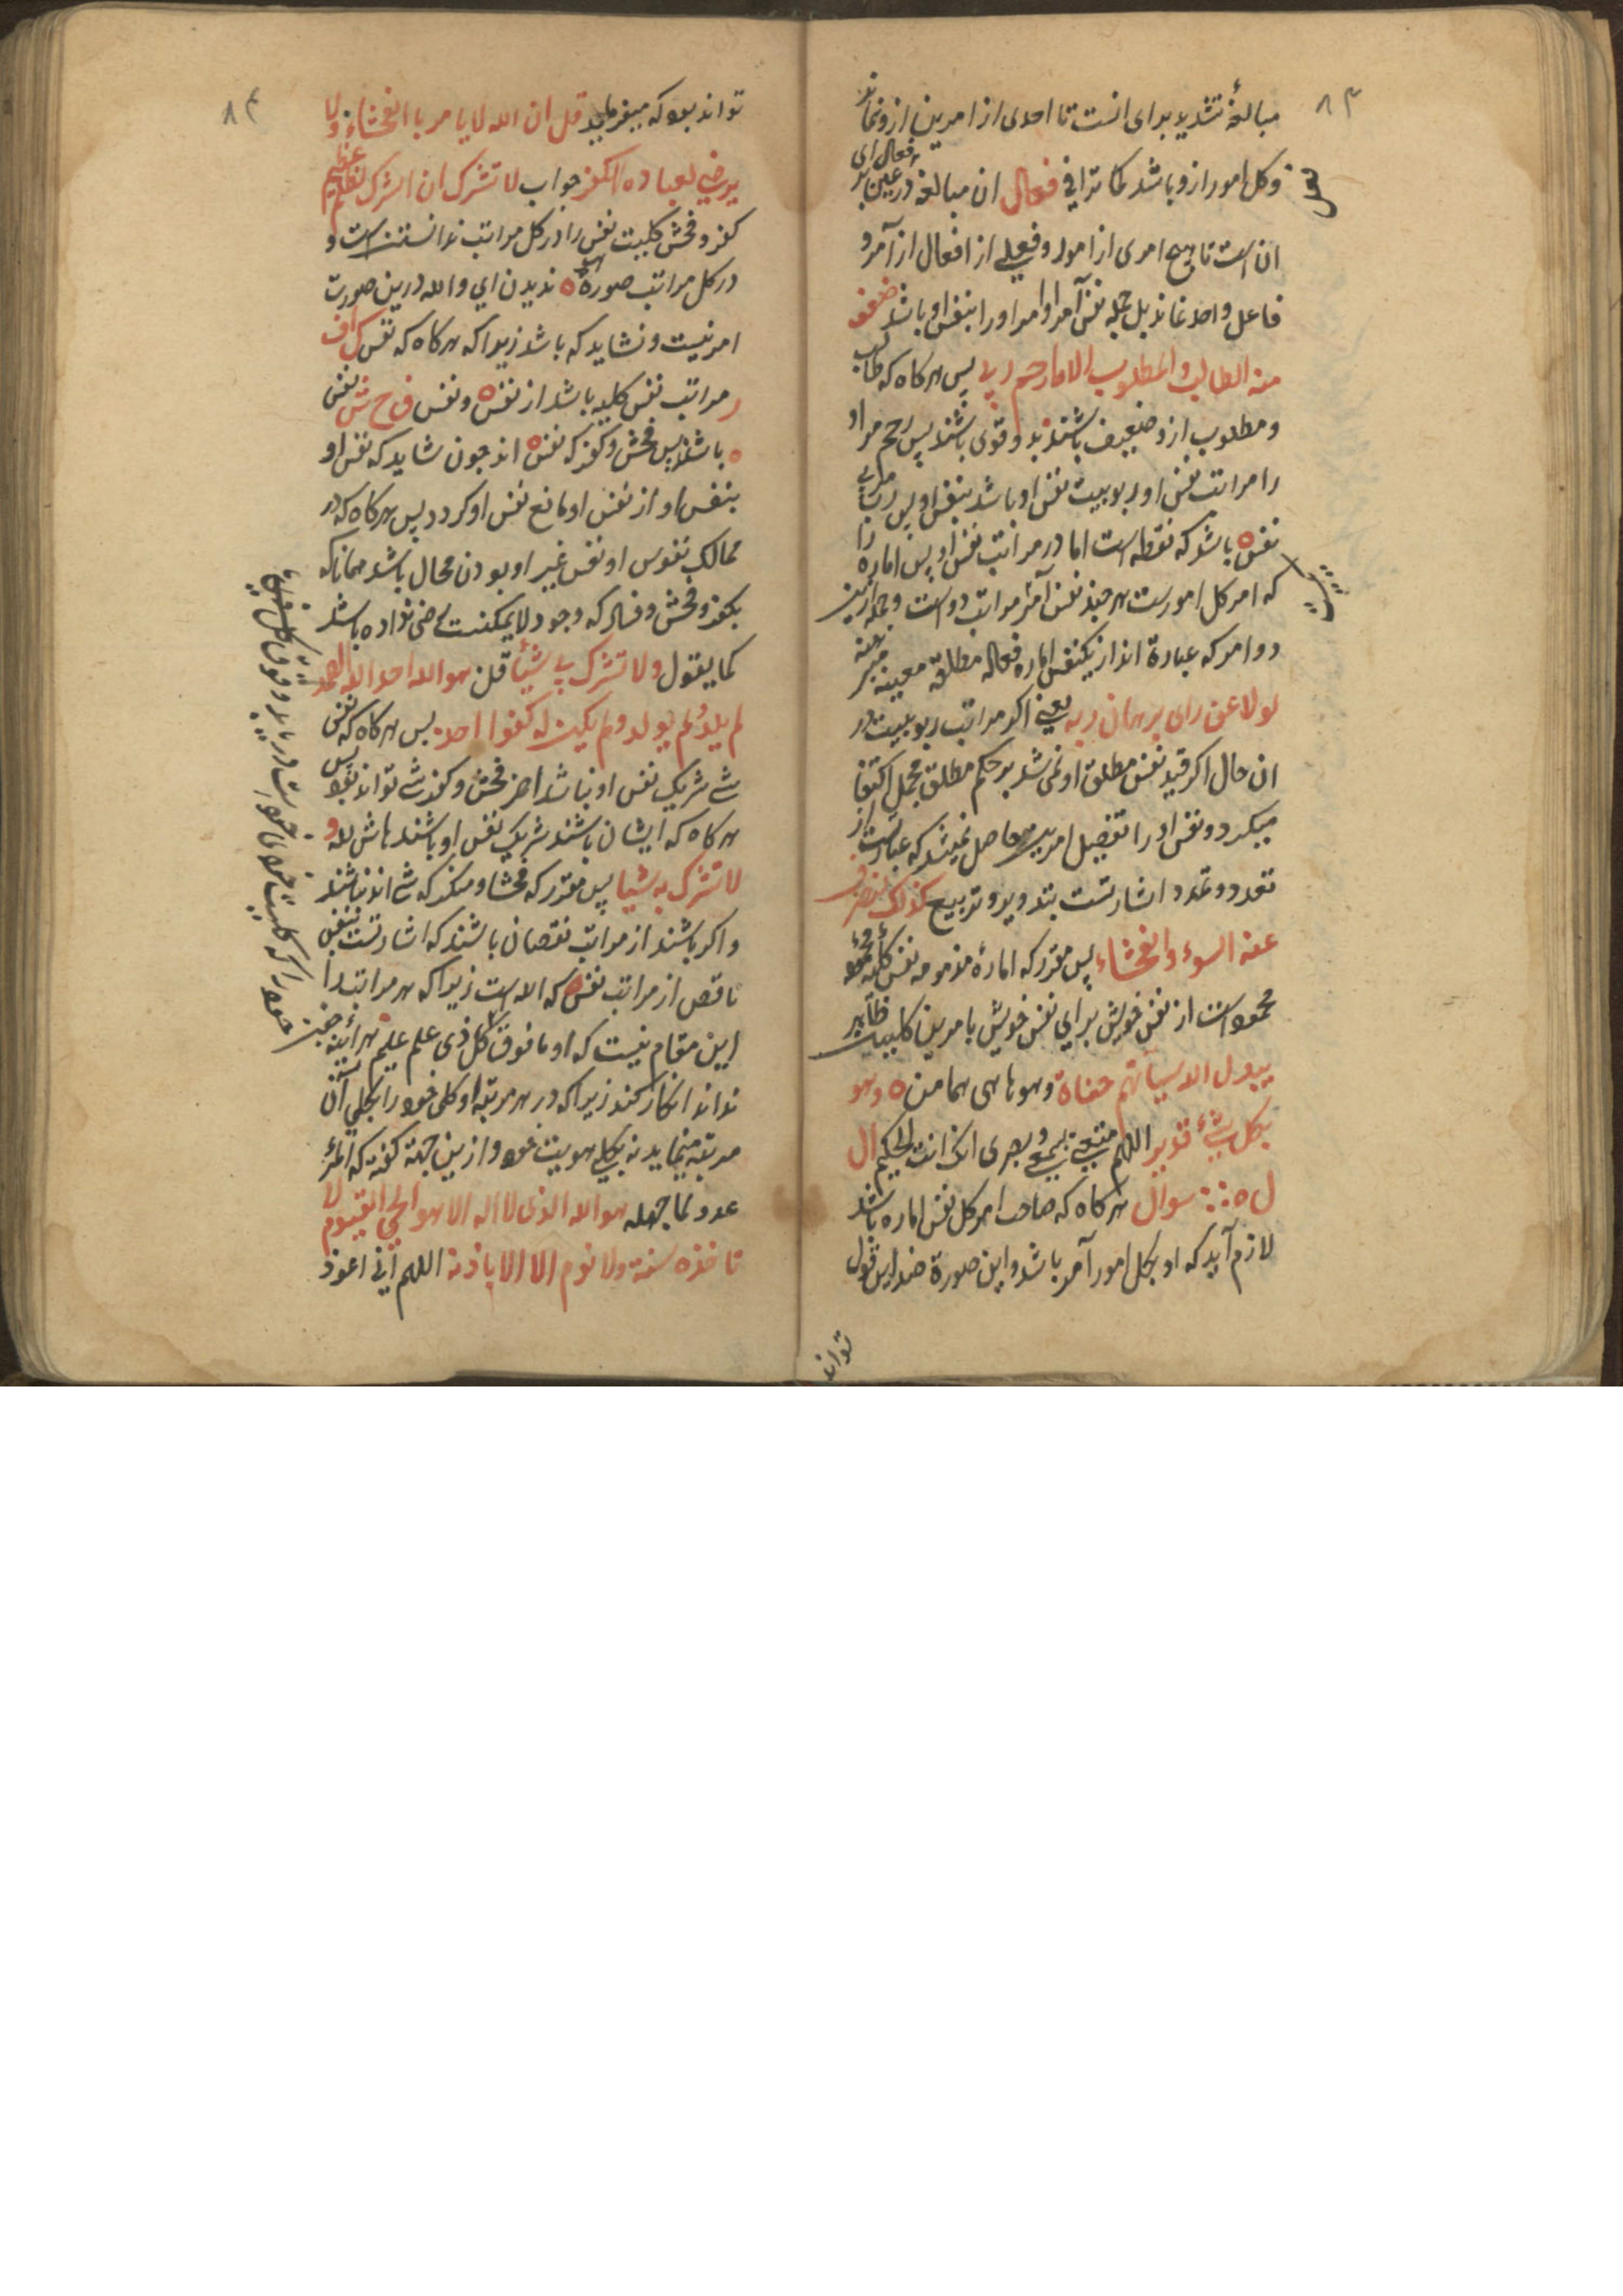 ۸۳
مبالغهٔ تشدید برای انست تا احدی از امرین ازو نماند
و کل امور ازو باشد کما ترا فی فعال ان مبالغه در عین
ان است تا هیچ امری از امور و فعلی از افعال از آمر و
فاعل واحد نماند بل جمله نفس آمر اوامر اورا بنفس او باشد ضعف
منه الطالب و المطلوب الا مارحم ربی پس هر کاه که طالب
و مطلوب ازو ضعیف باشند بدو قوی باشند پس رحم مر او
را مراتب نفس او ربوبیت نفس او باشد بنفس او پس
نفس ه باشد که نقطه است اما در مراتب نفس او پس اماره
که امر کل امورست هر چند نفس آمر مراتب دواست و جمله ازین
دو امر که عبارة اند از یکنفس اماره فعاله مطلقه معینه
لولا عن رای برهان ربه یعنی اکر مراتب ربوبیت در
ان حال اکر قید نفس مطلق او نمی شد بر حکم مطلق مجمل اکتفا
میکرد و نفس اورا تفصیل امرین حاصل نمیشد که عبارتست از
تعدد و تمدد اشارتست بتدویر و تربیع کذلک لنصرف
عنه السوء و الفحشاء پس مقرر که امارهٔ مذمومه نفس کلیه
محمود است از نفس خویش برای نفس خویش بامرین کلیبین
یبدل الله سیآتهم حسناة و هو ما هی هما من ه و هو
بکل شیء قدیر اللهم متعنی بسمعی و بصری انک انت الحکیم ال
ل ه سوال هر کاه که صاحب امر کل نفس اماره باشد
لازم آید که او بکل امور آمر باشد و این صورة ضد این قول
تواند
۸۴
تواند بود که میفرماید قل ان الله لا یامر با الفحشاء و لا
یرضی لعباده الکفر جواب لا تشرک ان الشرک لظلم عظیم
کفر و فحش کلیت نفس را در کل مراتب ندانستن است و
در کل مراتب صورة ه ندیدن ای و الله درین صورت
امر نیست و نشاید که باشد زیرا که هر کاه که نفس ک اف
ر مراتب نفس کلیه باشد از نفس ه و نفس ف ح ش نفس
ه باشند پس فحش و کفر که نفس ه اند چون شاید که نفس او
بنفس او از نفس او مانع نفس او کردد پس هر کاه که در
ممالک نفوس او نفس غیر او بودن محال باشد همانا که
بکفر و فحش و فساد که وجود لا یمکنست راضی نداده باشد
کما یقول ولا تشرک بی شیئا قلن هو الله احد الله الصمد
لم یلد و لم یولد و لم یکن له کفوا احد پس هر کاه که نفس
شے شریک نفس او نباشد امر فحش و کفر شے تواند بود پس
هر کاه که ایشان باشند شریک نفس او باشند حاش لله و
لا تشرک به شیا پس مقرر که فحشا و منکر که شے اند نباشند
و اکر باشند از مراتب نقصان باشند که اشارتست بنفس
ناقص از مراتب نفس ه که اله است زیرا که هر مراتب را
این مقام نیست که او ما فوق کل ذی علم علیم هر آینه
نداند انکار کند زیرا که در هر مرتبه او کلی خود را بکلی آن
مرتبه مینماید نه بکلی هویت خود و ازین جهة کفته که المرء
عدو لما جهله هو الله الذی لا اله الا هو الحی القیوم لا
تاخذه سنة و لا نوم الا الا باذنه اللهم انی اعوذ